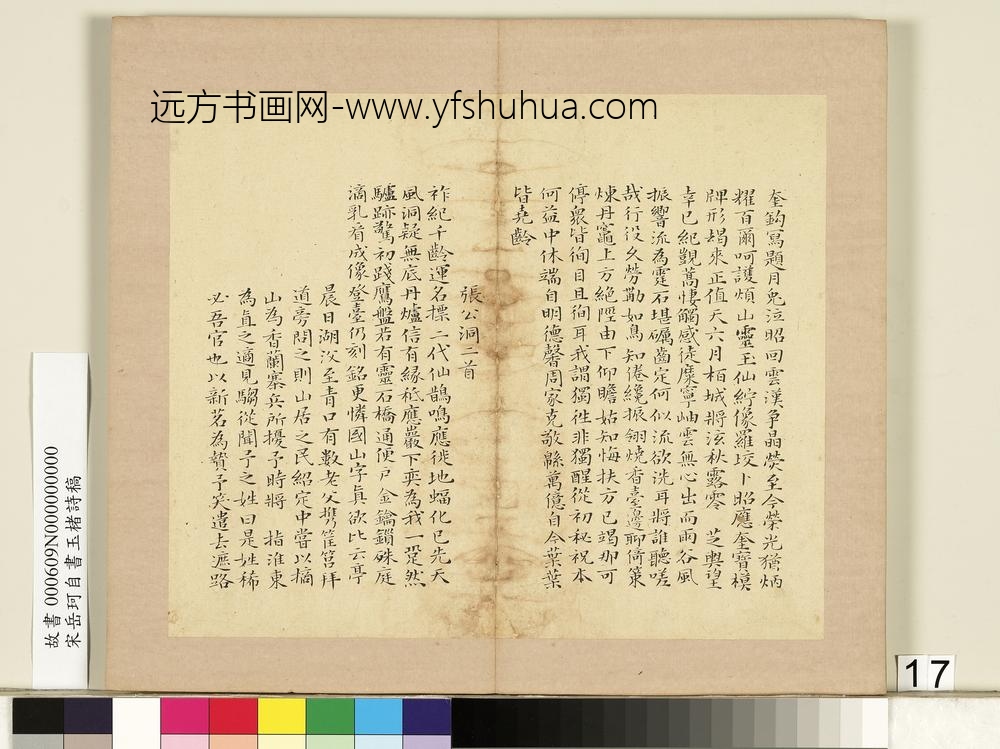 远方书画网-www.yfshuhua.com
奎鈎冩題月兎泣昭回雲漢争晶熒至今榮光猶炳
耀百爾呵護煩山靈王仙紵像羅坟卜昭應奎寳模
牌形朅来正值天六月栢城將泫秋露零 芝輿望
幸已紀觀萬悽觸感徒糜寧岫雲無心出而雨谷風
振響流為霆石堪礪齒定何似流欲洗耳將誰聽嗟
哉行役久勞勩如鳥知倦纔振翎燒香臺邊聊倚策
煉丹竈上方絶陘由下仰瞻姑知悔扶方已竭那可
停衆皆徇目且徇耳我謂獨徃非獨醒從初秘祝本
何益中休端自明德馨周家克敬緜萬億自今葉葉
皆堯齡
張公洞二首
祚紀千齡運名標二代仙鵲鳴應徙地蝠化已先天
風洞疑無底丹爐信有緣秪應巖下奕為我一跫然
驢跡驚初踐鷹盤若有靈石橋通便戶金鑰鎖殊庭
滴乳看成像登臺仍刻銘更憐國山字真欲比云亭
晨日湖㳇至青口有數老父携筐筥拜
道旁問之則山居之民紹定中嘗以摘
山為香蘭寨兵所擾予時將 指淮東
為直之適見騶從聞予之姓曰是姓稀
必吾官也以新茗為贄予笑遣去遮路
故書 000609N000000000
宋岳珂自書玉楮詩稿
17